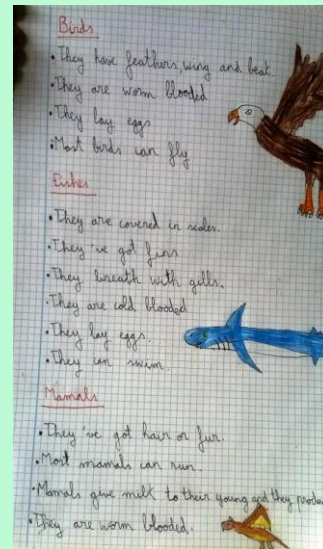 Birds
• They have feathers, wing and beak.
• They are worm blooded
• They lay eggs
• Most birds can fly
Fishes
• They are covered in scales.
• They've got fins
• They breath with gills.
• They are cold blooded
• They lay eggs.
• They can swim.
Mamals
• They've got hair or fur.
• Most mamals can run.
• Mamals give milk to their young and they produ
• They are worm blooded.